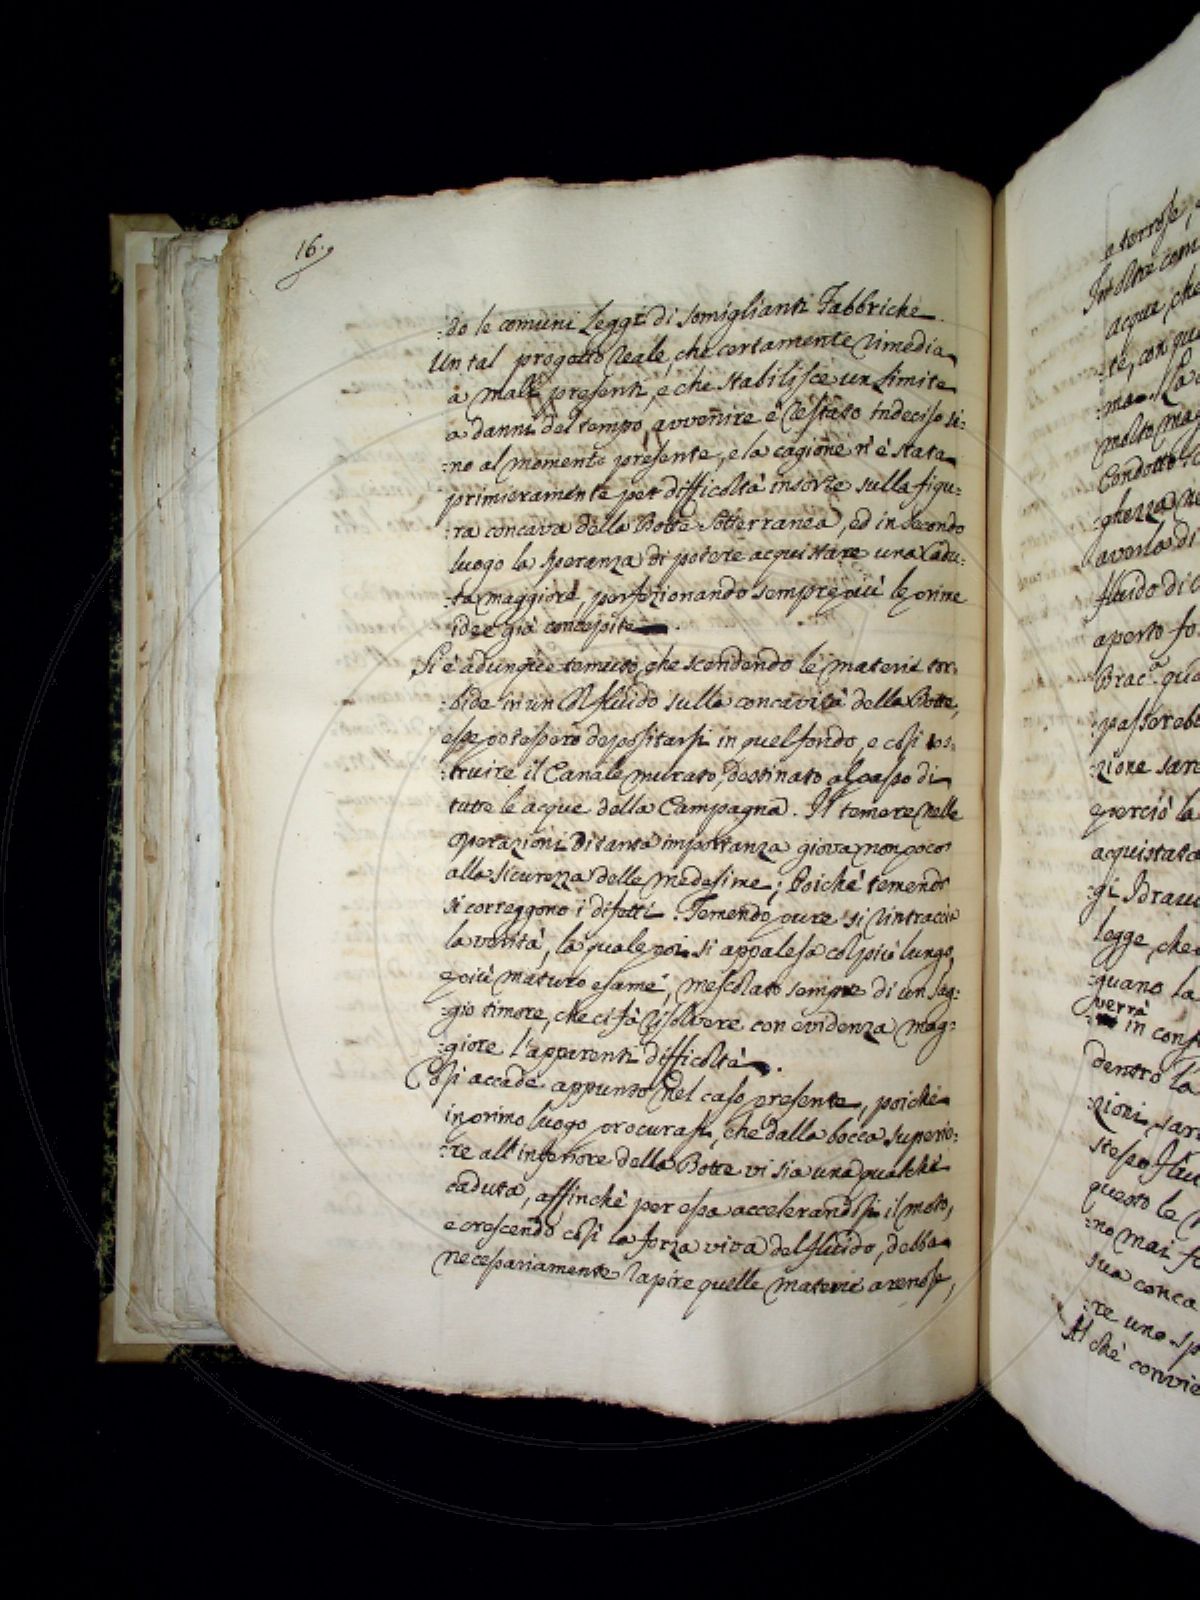 16.
:do le comuni Leggi di somiglianti Fabbriche.
Un tal progetto reale, che certamente rimedia
a mali presenti, e che stabilisce un limite
a danni del tempo avvenire è restato indeciso si:
:no al momento presente, e la cagione n'è stata
primieramente per difficoltà insorte sulla figu:
:ra concava della Botte sotterranea, ed in secondo
luogo la speranza di potere acquistare una cadu:
:ta maggiore, perfezionando sempre più le prime
idee già concepite.
Si è adunque temuto, che scendendo le materie tor:
:bide in un col fluido sulla concavità della Botte,
esse potessero depositarsi in quel fondo, e così os:
:truire il Canale murato, destinato al passo di
tutte le acque della Campagna. Il temere nelle
operazioni di tanta importanza giova non poco
alla sicurezza delle medesime; Poichè temendo
si correggono i difetti. Temendo pure si rintraccia
la verità, la quale poi si appalesa col più lungo,
e più maturo esame, mescolato sempre di un sag:
:gio timore, che ci fà risolvere con evidenza mag:
:giore l'apparenti difficoltà.
Così accade appunto nel caso presente, poichè
in primo luogo procurasi, che dalla bocca superio:
:re all'inferiore della Botte vi sia una qualche
caduta, affinchè per essa accelerandosi il moto,
e crescendo così la forza viva del fluido, debba
necessariamente rapire quelle materie arenose,
e terrose,
Inoltre com
acque, che
:te, con qu
:ma. La
molto ma
Condotto
:ghezza, ne
averla di
fluido di
aperto fo
Brac.ª qua
:passereb
:zione sar
e perciò la
acquistata
:gi Brav
legge, che
:guano la
verrà
in conf
dentro la
:zioni, sar
stesso flu
questo le
:no mai f
sua conca
:re uno sp
Al chè convie